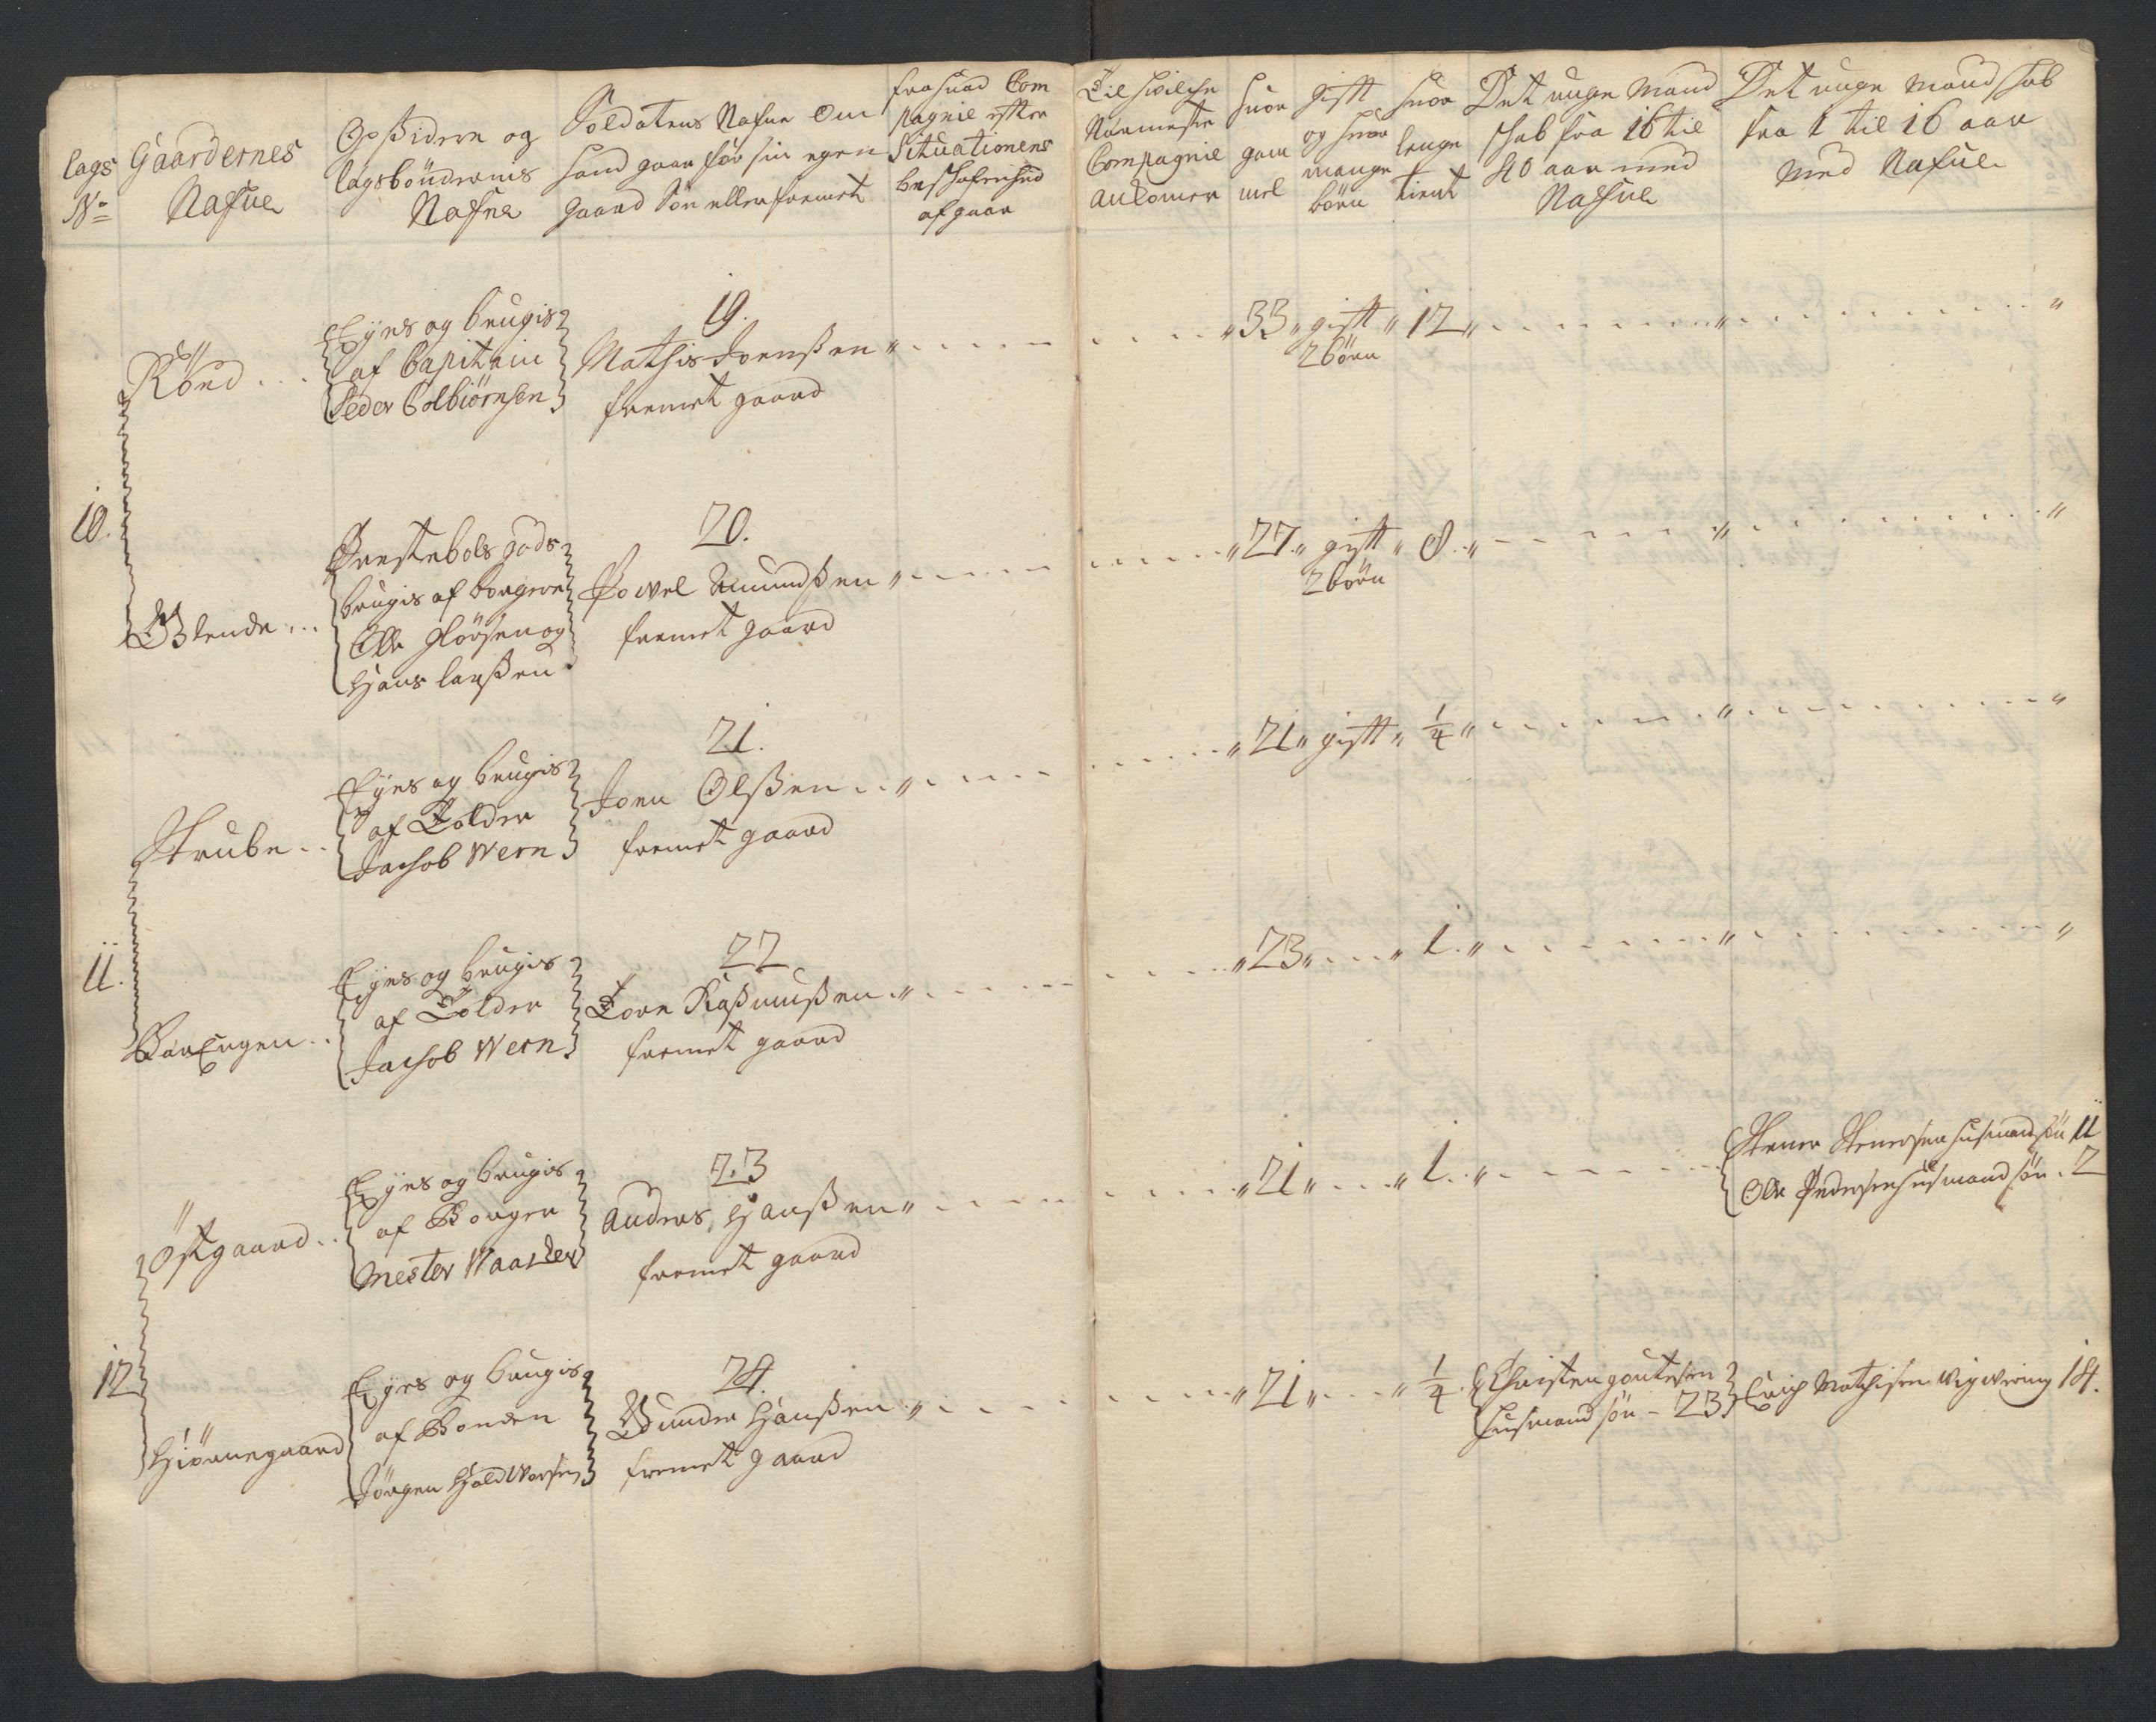 lags
No
Gaardernes
Nafne
Opsidern og
lagsbönderns
Nafne
Soldatens Nafne Om
hand gaar for sin egen
gaard Sön eller fremet
fra huad Com
pagnie efter
Situationens
beschafenhed
afgaar
Til hvilche
Nærmeste
Compagnie
ankomer
huor
gam
mel
gift
og huor
mange
börn
huor
lenge
tient
Det unge Mand
schab fra 16 til
40 aar med
Nafne
Det unge mandschab
fra 1 til 16 aar
med Nafne
10.
Röed
Eyes og brugis
af Capitain
Peder Colbiörnsen
19.
Mathis Joenßen
fremet gaard
33 gift 12
2 börn
Blende
Prestebols gods
brugis af borgere
Olle Flörsen og
Hans larßen
20.
Powel Amundßen
fremet gaard
27 gift 8
2 börn
11.
Strube
Eyes og brugis
af Tolder
Jachob Wern
21.
Joen Olßen
fremet gaard
21 gift 1/4
BarEngen
Eyes og brugis
af Tolder
Jachob Wern
22
Tore Raßmußen
fremet gaard
23 1
12
Östgaard
Eyes og brugis
af Borger
Mester Waaler
23
Anders Hanßen
fremet gaard
21 1
Stener Stenersen husmand sön 11
Olle Pedersen husmand sön 2
Hiörnegaard
Eyes og brugis
af Bonden
Jörgen HaldWorsen
24.
Gunder Hanßen
fremet gaard
21 1/4
Christen goutesen
husmand sön - 23
Erich Mathisen Wigwering 14.